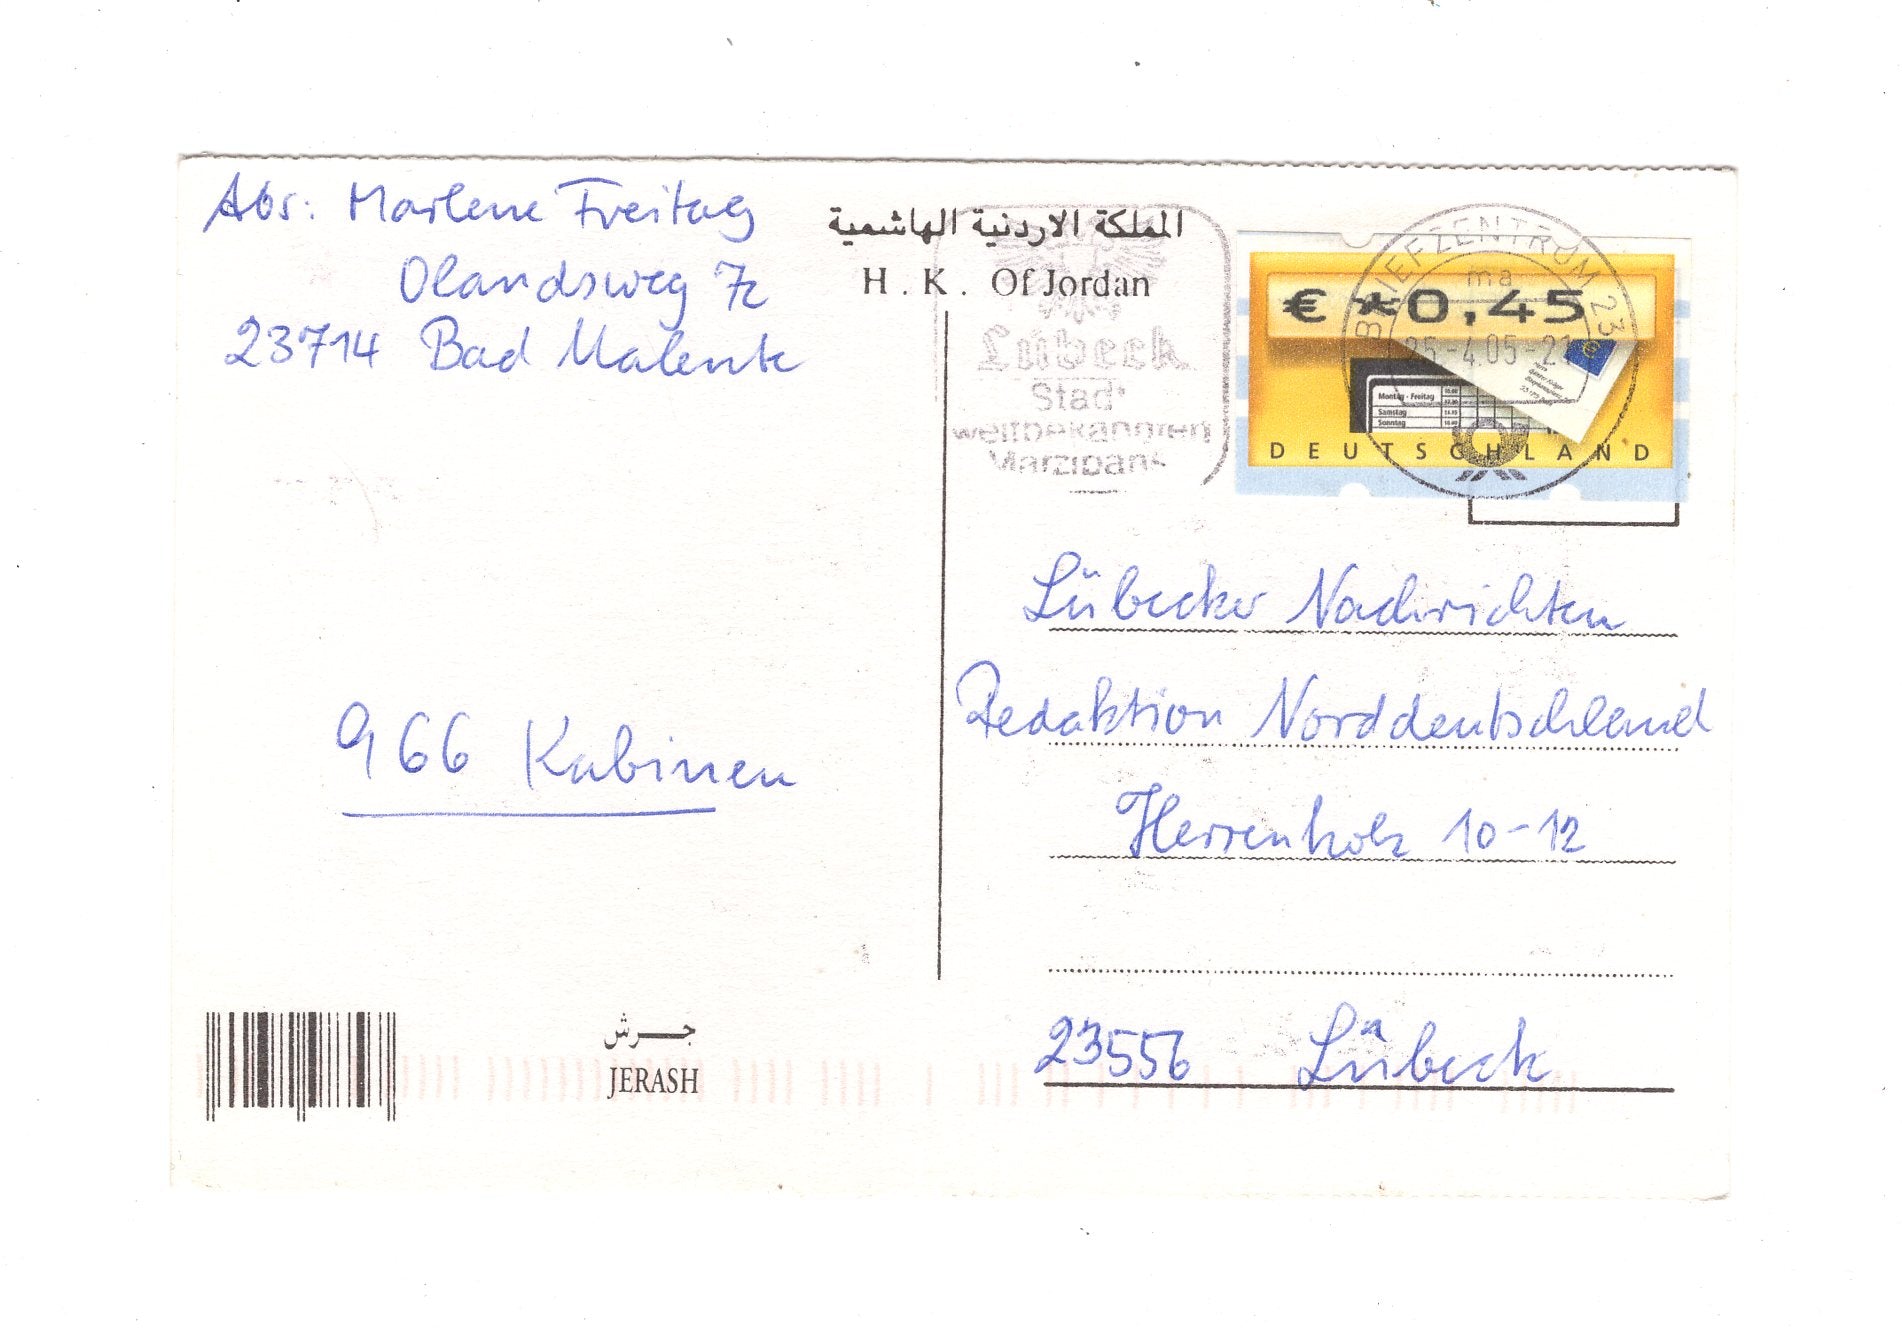 Abs: Marlene Freitag
Olandsweg 7c
23714 Bad Malente
المملكة الاردنية الهاشمية
H . K . Of Jordan
Lübeck
Stadt
weltbekannten
Marzipans
BRIEFZENTRUM 23
ma
25.-4.05-21
€ *0,45
Montag - Freitag
Samstag
Sonntag
DEUTSCHLAND
Lübecker Nachrichten
Redaktion Norddeutschland
Herrenholz 10-12
23556 Lübeck
966 Kabinen
جرش
JERASH